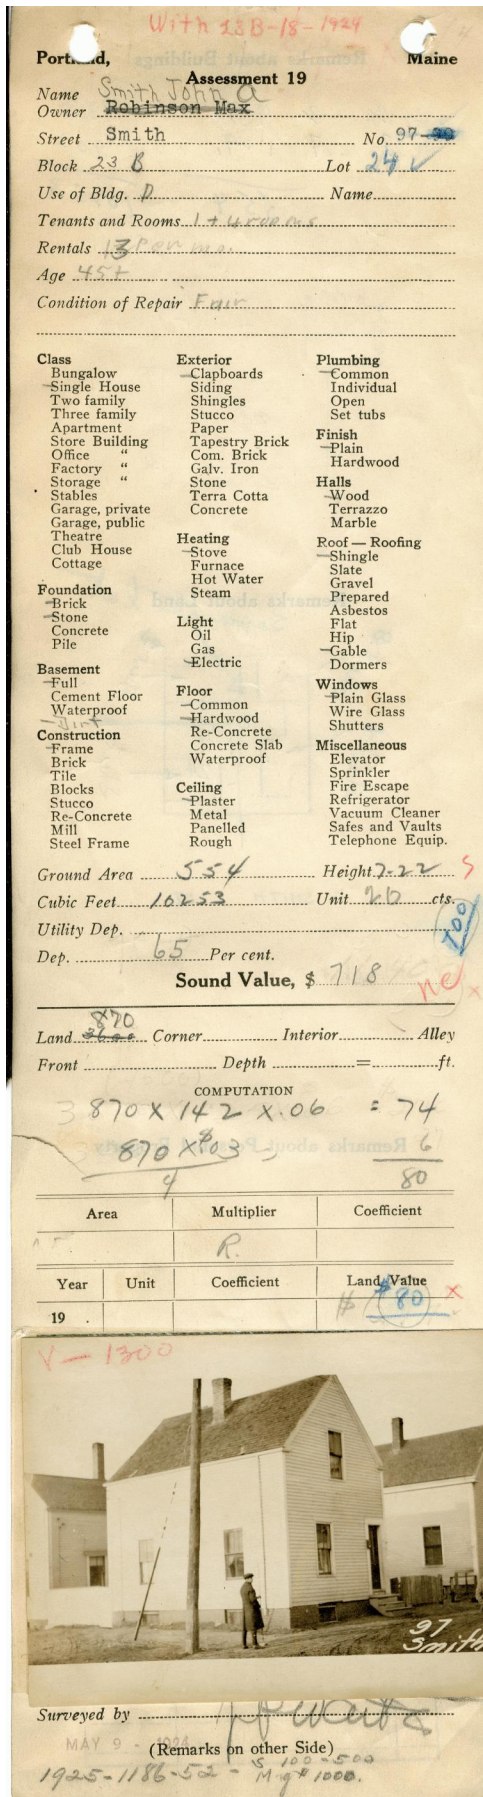 With 23B-18-1924
Portland, Maine
Assessment 19
Name Smith John A
Owner Robinson Max
Street Smith No. 97-99
Block 23 B Lot 24 ✓
Use of Bldg. D Name
Tenants and Rooms 1 + 4 rooms
Rentals 13 Per mo.
Age 45+
Condition of Repair Fair
Class
Bungalow
Single House
Two family
Three family
Apartment
Store Building
Office "
Factory "
Storage "
Stables
Garage, private
Garage, public
Theatre
Club House
Cottage
Foundation
Brick
Stone
Concrete
Pile
Basement
Full
Cement Floor
Waterproof
Dirt
Construction
Frame
Brick
Tile
Blocks
Stucco
Re-Concrete
Mill
Steel Frame
Exterior
Clapboards
Siding
Shingles
Stucco
Paper
Tapestry Brick
Com. Brick
Galv. Iron
Stone
Terra Cotta
Concrete
Heating
Stove
Furnace
Hot Water
Steam
Light
Oil
Gas
Electric
Floor
Common
Hardwood
Re-Concrete
Concrete Slab
Waterproof
Ceiling
Plaster
Metal
Panelled
Rough
Plumbing
Common
Individual
Open
Set tubs
Finish
Plain
Hardwood
Halls
Wood
Terrazzo
Marble
Roof — Roofing
Shingle
Slate
Gravel
Prepared
Asbestos
Flat
Hip
Gable
Dormers
Windows
Plain Glass
Wire Glass
Shutters
Miscellaneous
Elevator
Sprinkler
Fire Escape
Refrigerator
Vacuum Cleaner
Safes and Vaults
Telephone Equip.
Ground Area 554 Height 7-22
Cubic Feet 10253 Unit 20 cts.
Utility Dep. 700
Dep. 65 Per cent.
Sound Value, $ 718
870
Land 3600 Corner Interior Alley
Front Depth = ft.
COMPUTATION
870 X 142 X .06 = 74
870 X $03 6
4 80
Area Multiplier Coefficient
R.
Year Unit Coefficient Land Value
19 . $ 80 x
V - 1300
97
Smith
Surveyed by
MAY 9 - 1924
(Remarks on other Side)
1925-1186-52 - S 100-500
Mg $ 1000.